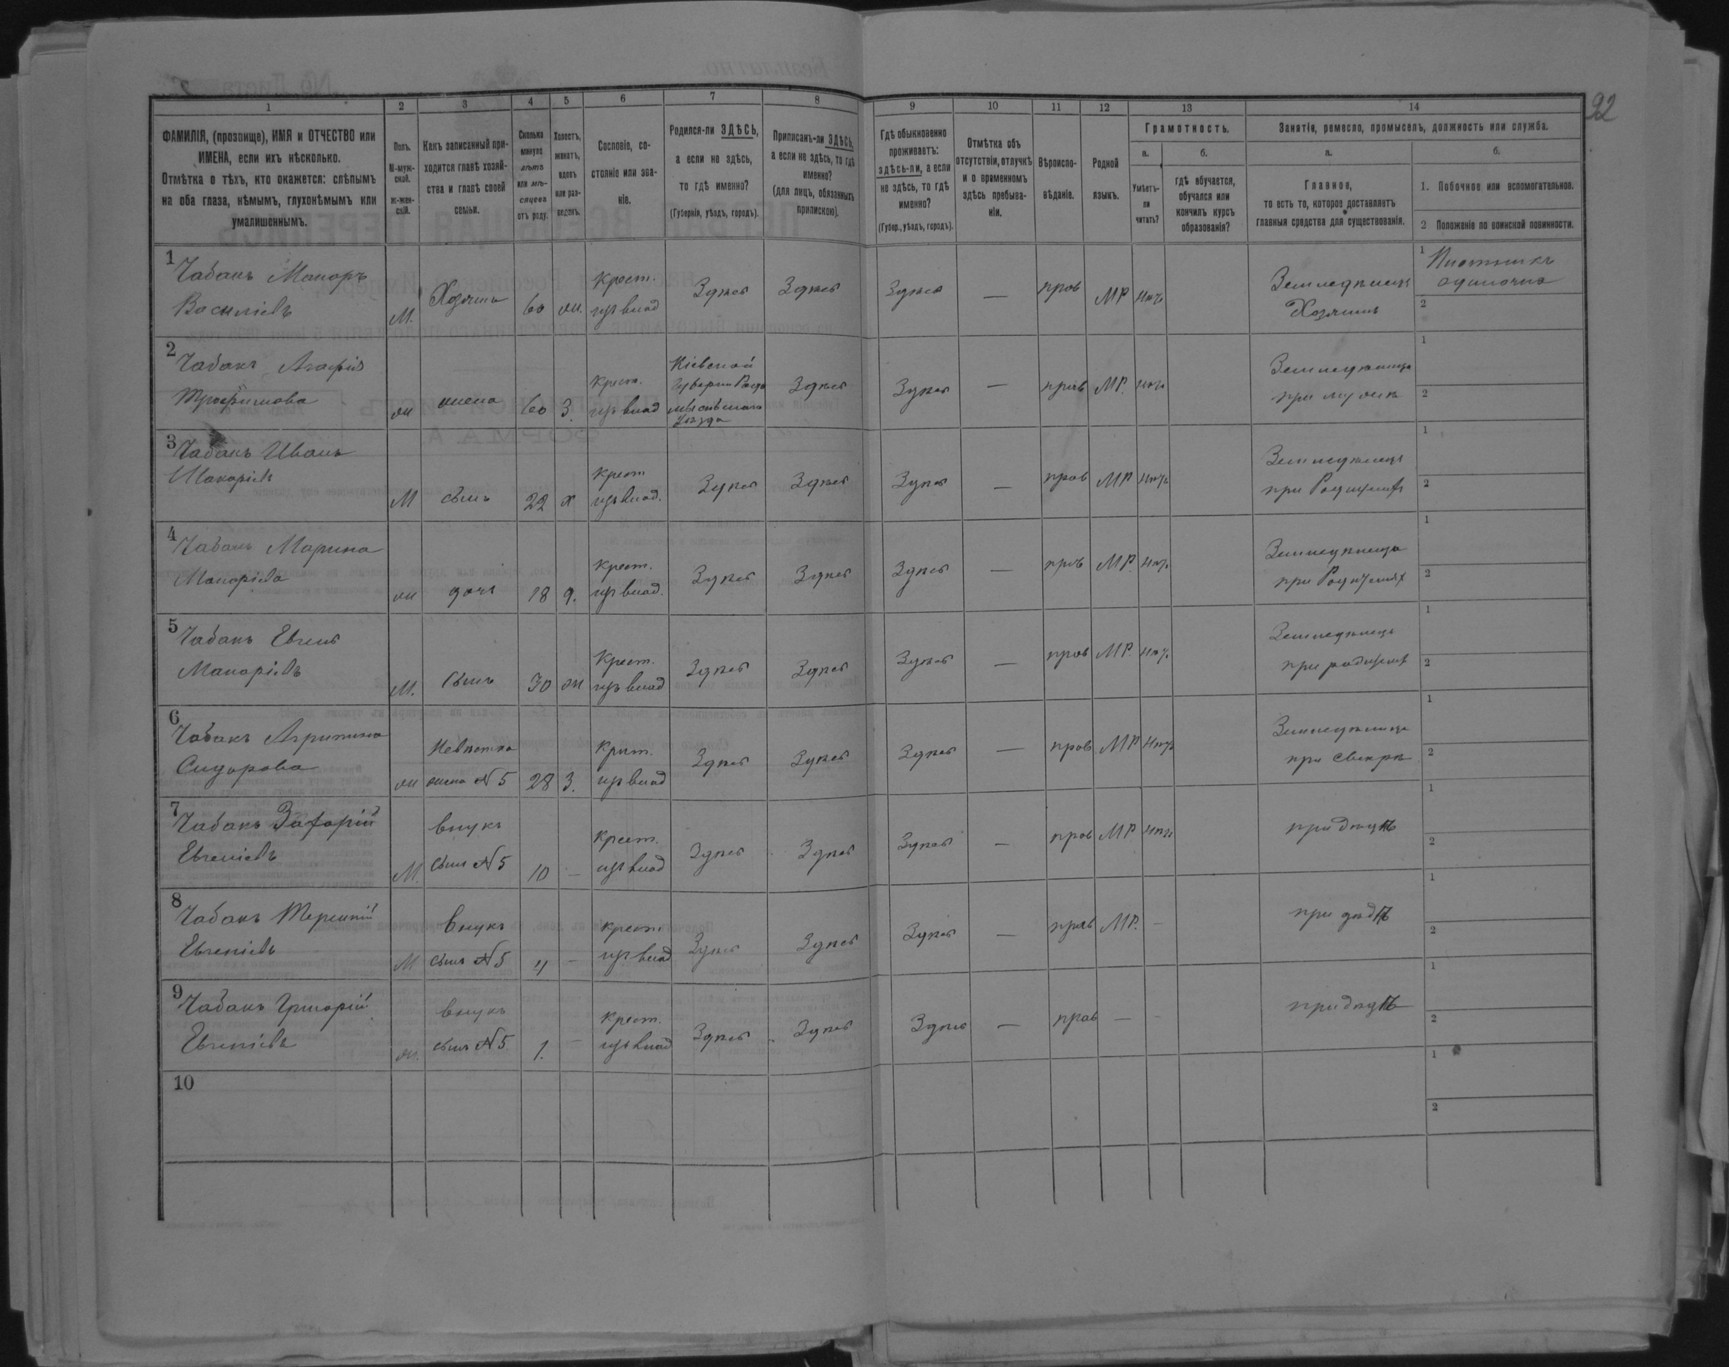 92
1 2 3 4 5 6 7 8 9 10 11 12 13 14
ФАМИЛІЯ, (прозвище), ИМЯ и ОТЧЕСТВО или
ИМЕНА, если ихъ нѣсколько.
Отмѣтка о тѣхъ, кто окажется: слѣпымъ
на оба глаза, нѣмымъ, глухонѣмымъ или
умалишеннымъ.
Полъ.
М-муж-
ской.
ж-жен-
скій.
Какъ записанный при-
ходится главѣ хозяй-
ства и главѣ своей
семьи.
Сколько
минуло
лѣтъ
или мѣ-
сяцевъ
отъ роду.
Холостъ,
женатъ,
вдовъ
или раз-
веденъ.
Сословіе, со-
стояніе или зва-
ніе.
Родился-ли ЗДѢСЬ,
а если не здѣсь,
то гдѣ именно?
(Губернія, уѣздъ, городъ).
Приписанъ-ли ЗДѢСЬ,
а если не здѣсь, то гдѣ
именно?
(для лицъ, обязанныхъ
припискою).
Гдѣ обыкновенно
проживаетъ:
здѣсь-ли, а если
не здѣсь, то гдѣ
именно?
(Губер., уѣздъ, городъ).
Отмѣтка объ
отсутствіи, отлучкѣ
и о временномъ
здѣсь пребыва-
ніи.
Вѣроиспо-
вѣданіе.
Родной
языкъ.
Грамотность.
а.
Умѣетъ-
ли
читать?
б.
гдѣ обучается,
обучался или
кончилъ курсъ
образованія?
Занятіе, ремесло, промыселъ, должность или служба.
а.
Главное,
то есть то, которое доставляетъ
главныя средства для существованія.
б.
1. Побочное или вспомогательное.
2 Положеніе по воинской повинности.
1
Чабанъ Макаръ
Василіевъ
М. Хозяинъ 60 ж. Крест.
изъ влад
Здѣсь Здѣсь Здѣсь — прав МР нѣтъ
Земледѣлецъ
Хозяинъ
1 Плотникъ
одиночка
2
2
Чабанъ Агафія
Трофимова
ж жена 60 З. Крест.
изъ влад
Кіевской
Губерніи
Уѣзда
Здѣсь Здѣсь — прав МР. нѣтъ
Земледѣлица
при мужѣ
1
2
3
Чабанъ Иванъ
Макаріевъ
М сынъ 22 х Крест
изъ влад.
Здѣсь Здѣсь Здѣсь — прав МР нѣтъ
Земледѣлецъ
при Родителѣ
1
2
4
Чабанъ Марина
Макаріева
ж дочь 18 д. Крест.
изъ влад.
Здѣсь Здѣсь Здѣсь — прав МР. нѣтъ
Земледѣлица
при Родителяхъ
1
2
5
Чабанъ Евгенъ
Макаріевъ
М. Сынъ 30 ж Крест.
изъ влад
Здѣсь Здѣсь Здѣсь — прав МР. нѣтъ
Земледѣлецъ
при родителѣ
1
2
6
Чабанъ Агрипина
Сидорова
ж Невѣстка
жена №5 28 З. Крест.
изъ влад
Здѣсь Здѣсь Здѣсь — прав МР нѣтъ
Земледѣлица
при свекрѣ
1
2
7
Чабанъ Захарій
Евгеніевъ
М. внукъ
сынъ №5 10 — Крест.
изъ влад
Здѣсь Здѣсь Здѣсь — прав МР. нѣтъ
при дѣдѣ
1
2
8
Чабанъ Терентій
Евгеніевъ
М Внукъ
сынъ №5 4 — крест.
изъ влад
Здѣсь Здѣсь Здѣсь — прав МР. —
при дѣдѣ
1
2
9
Чабанъ Григорій
Евгеніевъ
внукъ
сынъ №5 1. — Крест.
изъ влад
Здѣсь Здѣсь Здѣсь — прав — —
при дѣдѣ
1
2
10
1
2